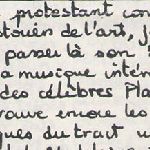 protestant con
storien de l'art, j
passer là son
a musique intér
des célèbres Pla
rouve encore les
ques du trait u